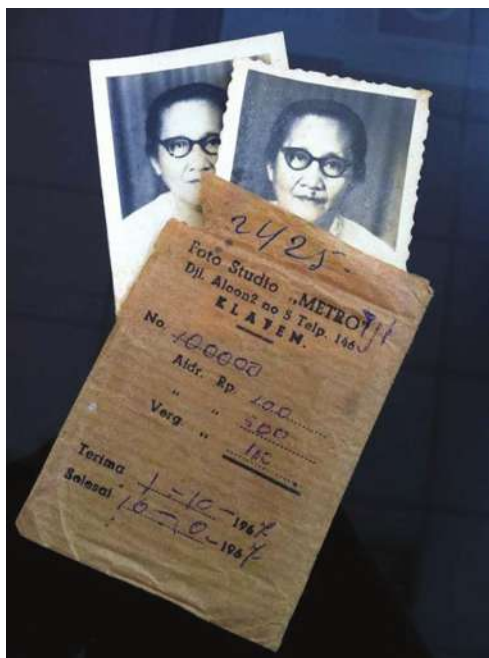 2425.
Foto Studio „METRO"
Djl. Aloon2 no 5 Telp. 146
KLATEN.
No. 100000
Afdr. Rp. 100
„ „ 500
Verg. „
Terima 1-10-1967
Selesai 10-10-1967